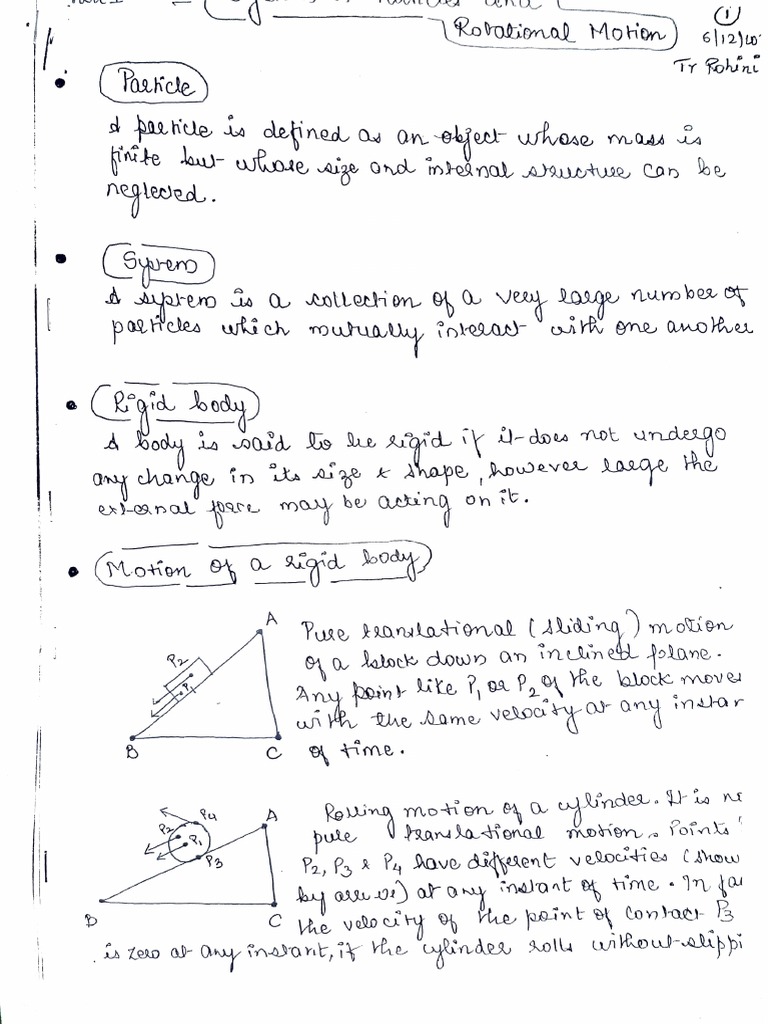 Rotational Motion
①
6/12/20
Tr Rohini
Particle
A particle is defined as an object whose mass is
finite but whose size and internal structure can be
neglected.
System
A system is a collection of a very large number of
particles which mutually interact with one another
Rigid body
A body is said to be rigid if it does not undergo
any change in its size & shape, however large the
external force may be acting on it.
Motion of a rigid body
A
P2
P1
B
C
Pure translational (sliding) motion
of a block down an inclined plane.
Any point like P1 or P2 of the block moves
with the same velocity at any instan
of time.
A
P4
P2
P1
P3
B
C
Rolling motion of a cylinder. It is n
pure translational motion. Points
P2, P3 & P4 have different velocities (show
by arrows) at any instant of time. In fac
the velocity of the point of contact P3
is zero at any instant, if the cylinder rolls without slippi